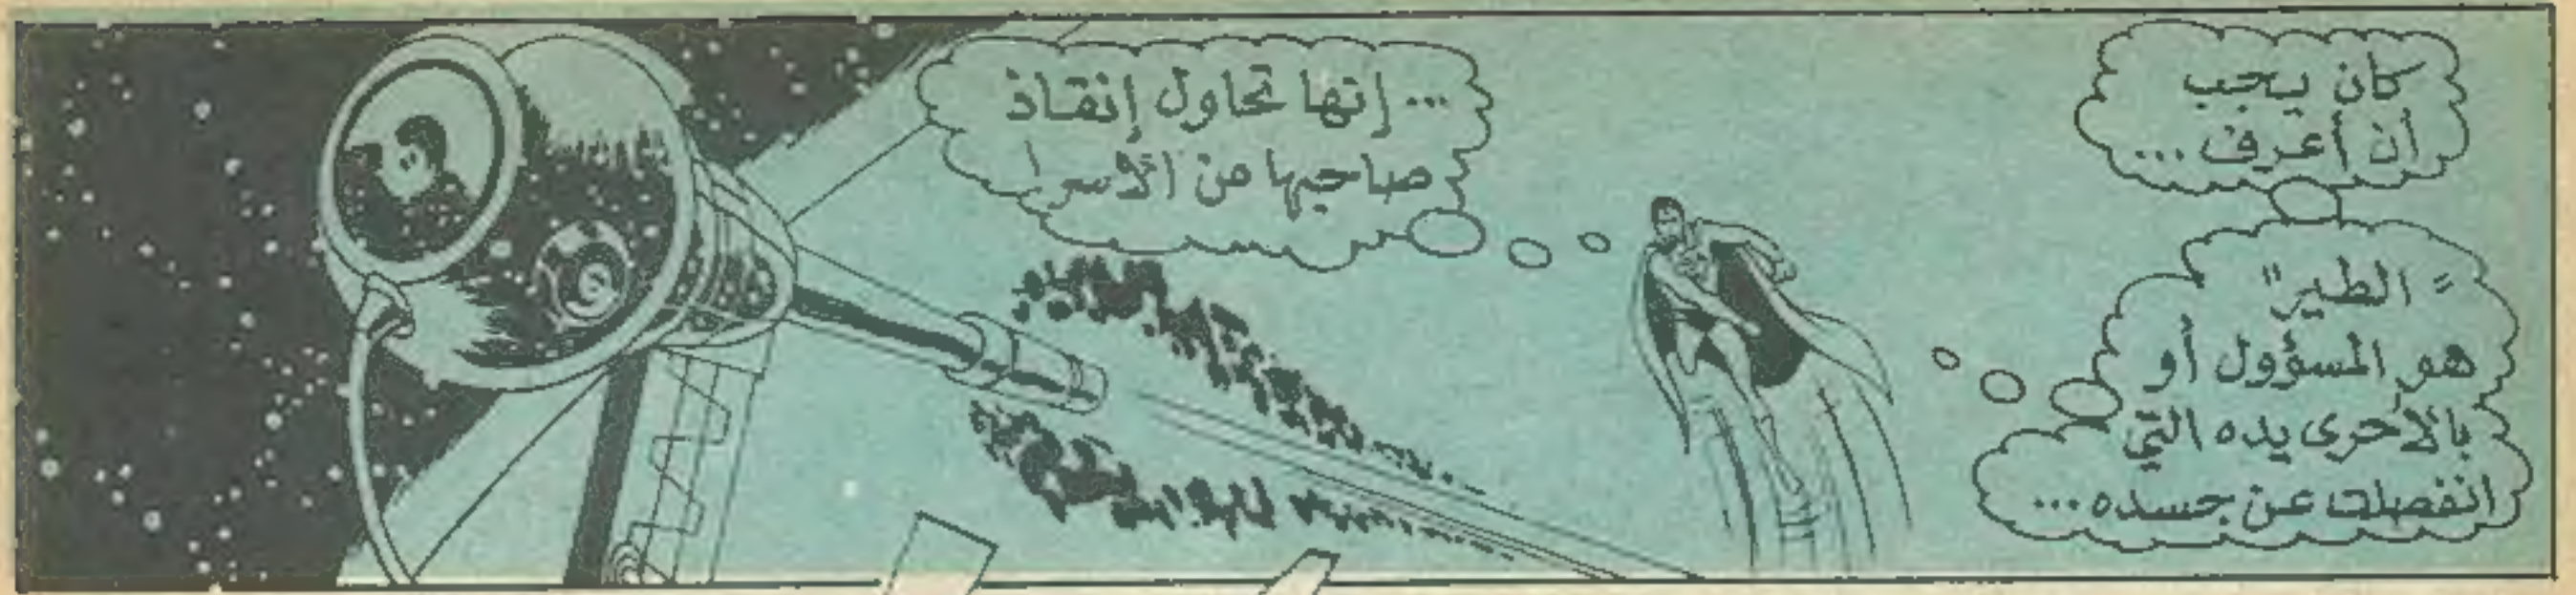 كان يجب
أن أعرف...
"الطير"
هو المسؤول أو
بالأحرى يده التي
انفصلت عن جسده...
... إنها تحاول إنقاذ
صاحبها من الأسر!